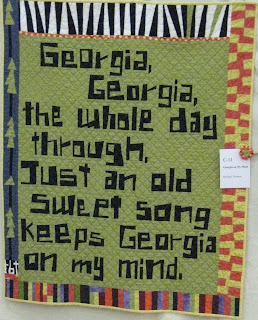 Georgia,
Georgia,
the whole day
through,
Just an old
sweet song
keeps Georgia
on my mind.
tbt
C-11
Georgia on My Mind